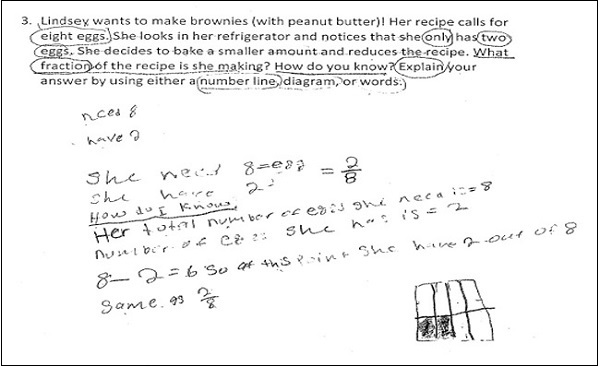 3. Lindsey wants to make brownies (with peanut butter)! Her recipe calls for
eight eggs. She looks in her refrigerator and notices that she only has two
eggs. She decides to bake a smaller amount and reduces the recipe. What
fraction of the recipe is she making? How do you know? Explain your
answer by using either a number line, diagram, or words.
need 8
have 2
She need 8=egg = 2/8
she have 2
How do I know.
Her total number of eggs she need is = 8
number of eggs she has is = 2
8-2=6 so at this point she have 2 out of 8
same as 2/8